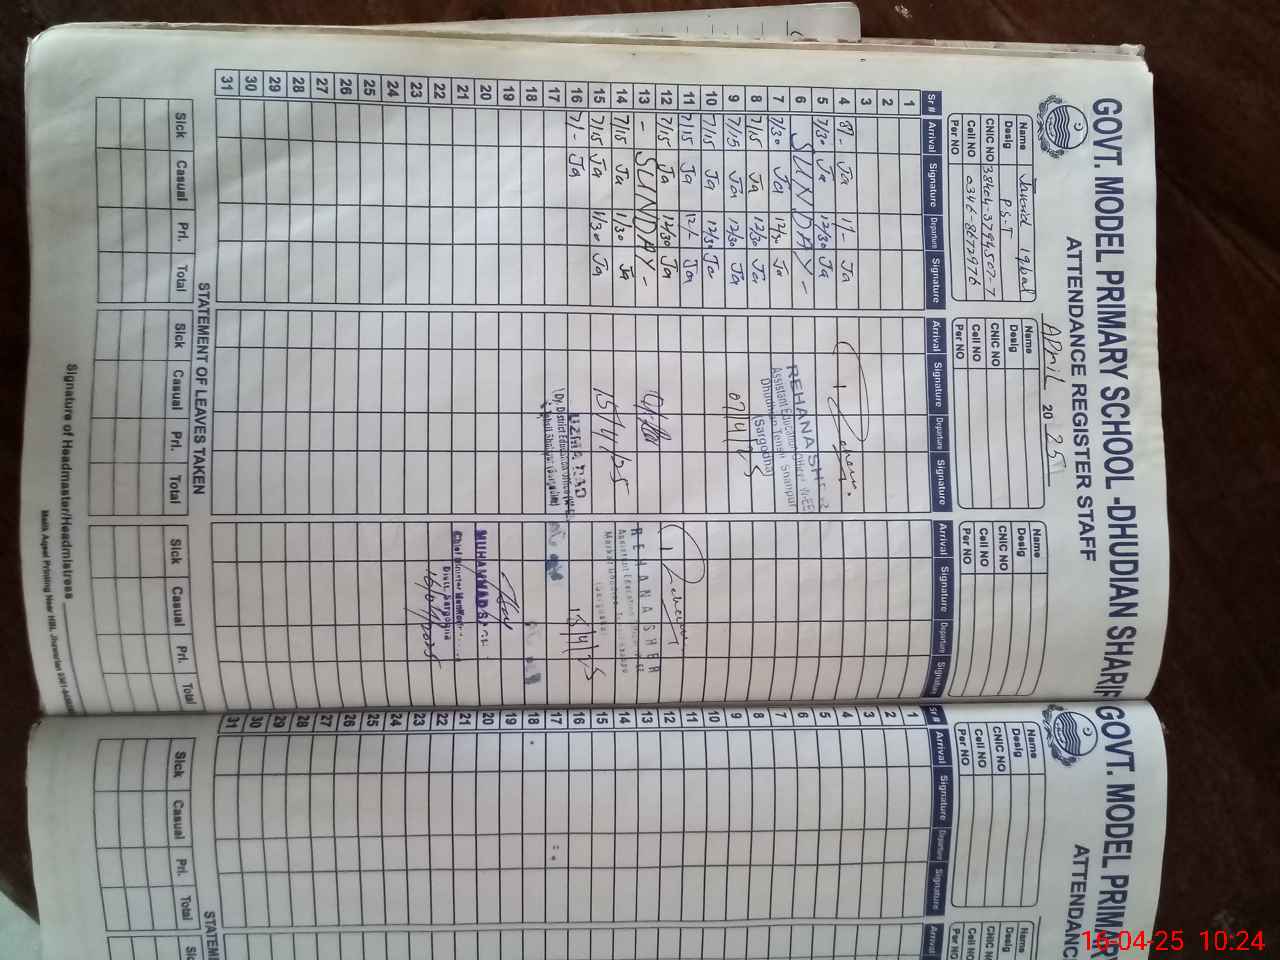 GOVT. MODEL PRIMARY SCHOOL -DHUDIAN SHARIF
ATTENDANCE REGISTER STAFF
APRIL 2025
Name Javeid Iqbal
Desig P.S.T
CNIC NO 38404-3794507-7
Cell NO 0346-8672976
Per NO
Name
Desig
CNIC NO
Cell NO
Per NO
Name
Desig
CNIC NO
Cell NO
Per NO
Sr # Arrival Signature Departure Signature Arrival Signature Departure Signature Arrival Signature Departure Signature
1
2
3
4 8/- Ja 11/- Ja
5 7/30 Ja 12/30 Ja
6 SUNDAY -
7 7/30 Ja 12/30 Ja
8 7/15 Ja 12/30 Ja
9 7/15 Ja 12/30 Ja
10 7/15 Ja 12/30 Ja
11 7/15 Ja 12/- Ja
12 7/15 Ja 12/30 Ja
13 - SUNDAY -
14 7/15 Ja 1/30 Ja
15 7/15 Ja 1/30 Ja
16 7/- Ja
17
18
19
20
21
22
23
24
25
26
27
28
29
30
31
REHANA SHE
Assistant Education Officer W-EE
Dhudhian Tehsil Shahpur
(Sargodha)
07/4/25
15/4/25
Dy. District Education Officer (W-E
REHANA SHER
Assistant Education
15/4/25
MUHAMMAD S
Chief Minister
Distt. Sargodha
16/04/2025
Sick Casual Pri. Total Sick Casual Pri. Total Sick Casual Pri. Total
STATEMENT OF LEAVES TAKEN
Signature of Headmaster/Headmistress
Malik Aqeel Printing Near HBL Jhawarian
GOVT. MODEL PRIMAR
ATTENDANC
Name
Desig
CNIC NO
Cell NO
Per NO
Name
Desig
CNIC NO
Cell NO
Per NO
Sr # Arrival Signature Departure Signature Arrival
1
2
3
4
5
6
7
8
9
10
11
12
13
14
15
16
17
18
19
20
21
22
23
24
25
26
27
28
29
30
31
Sick Casual Pri. Total Sic
STATEM
16-04-25 10:24